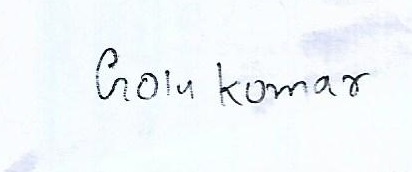 Golu kumar